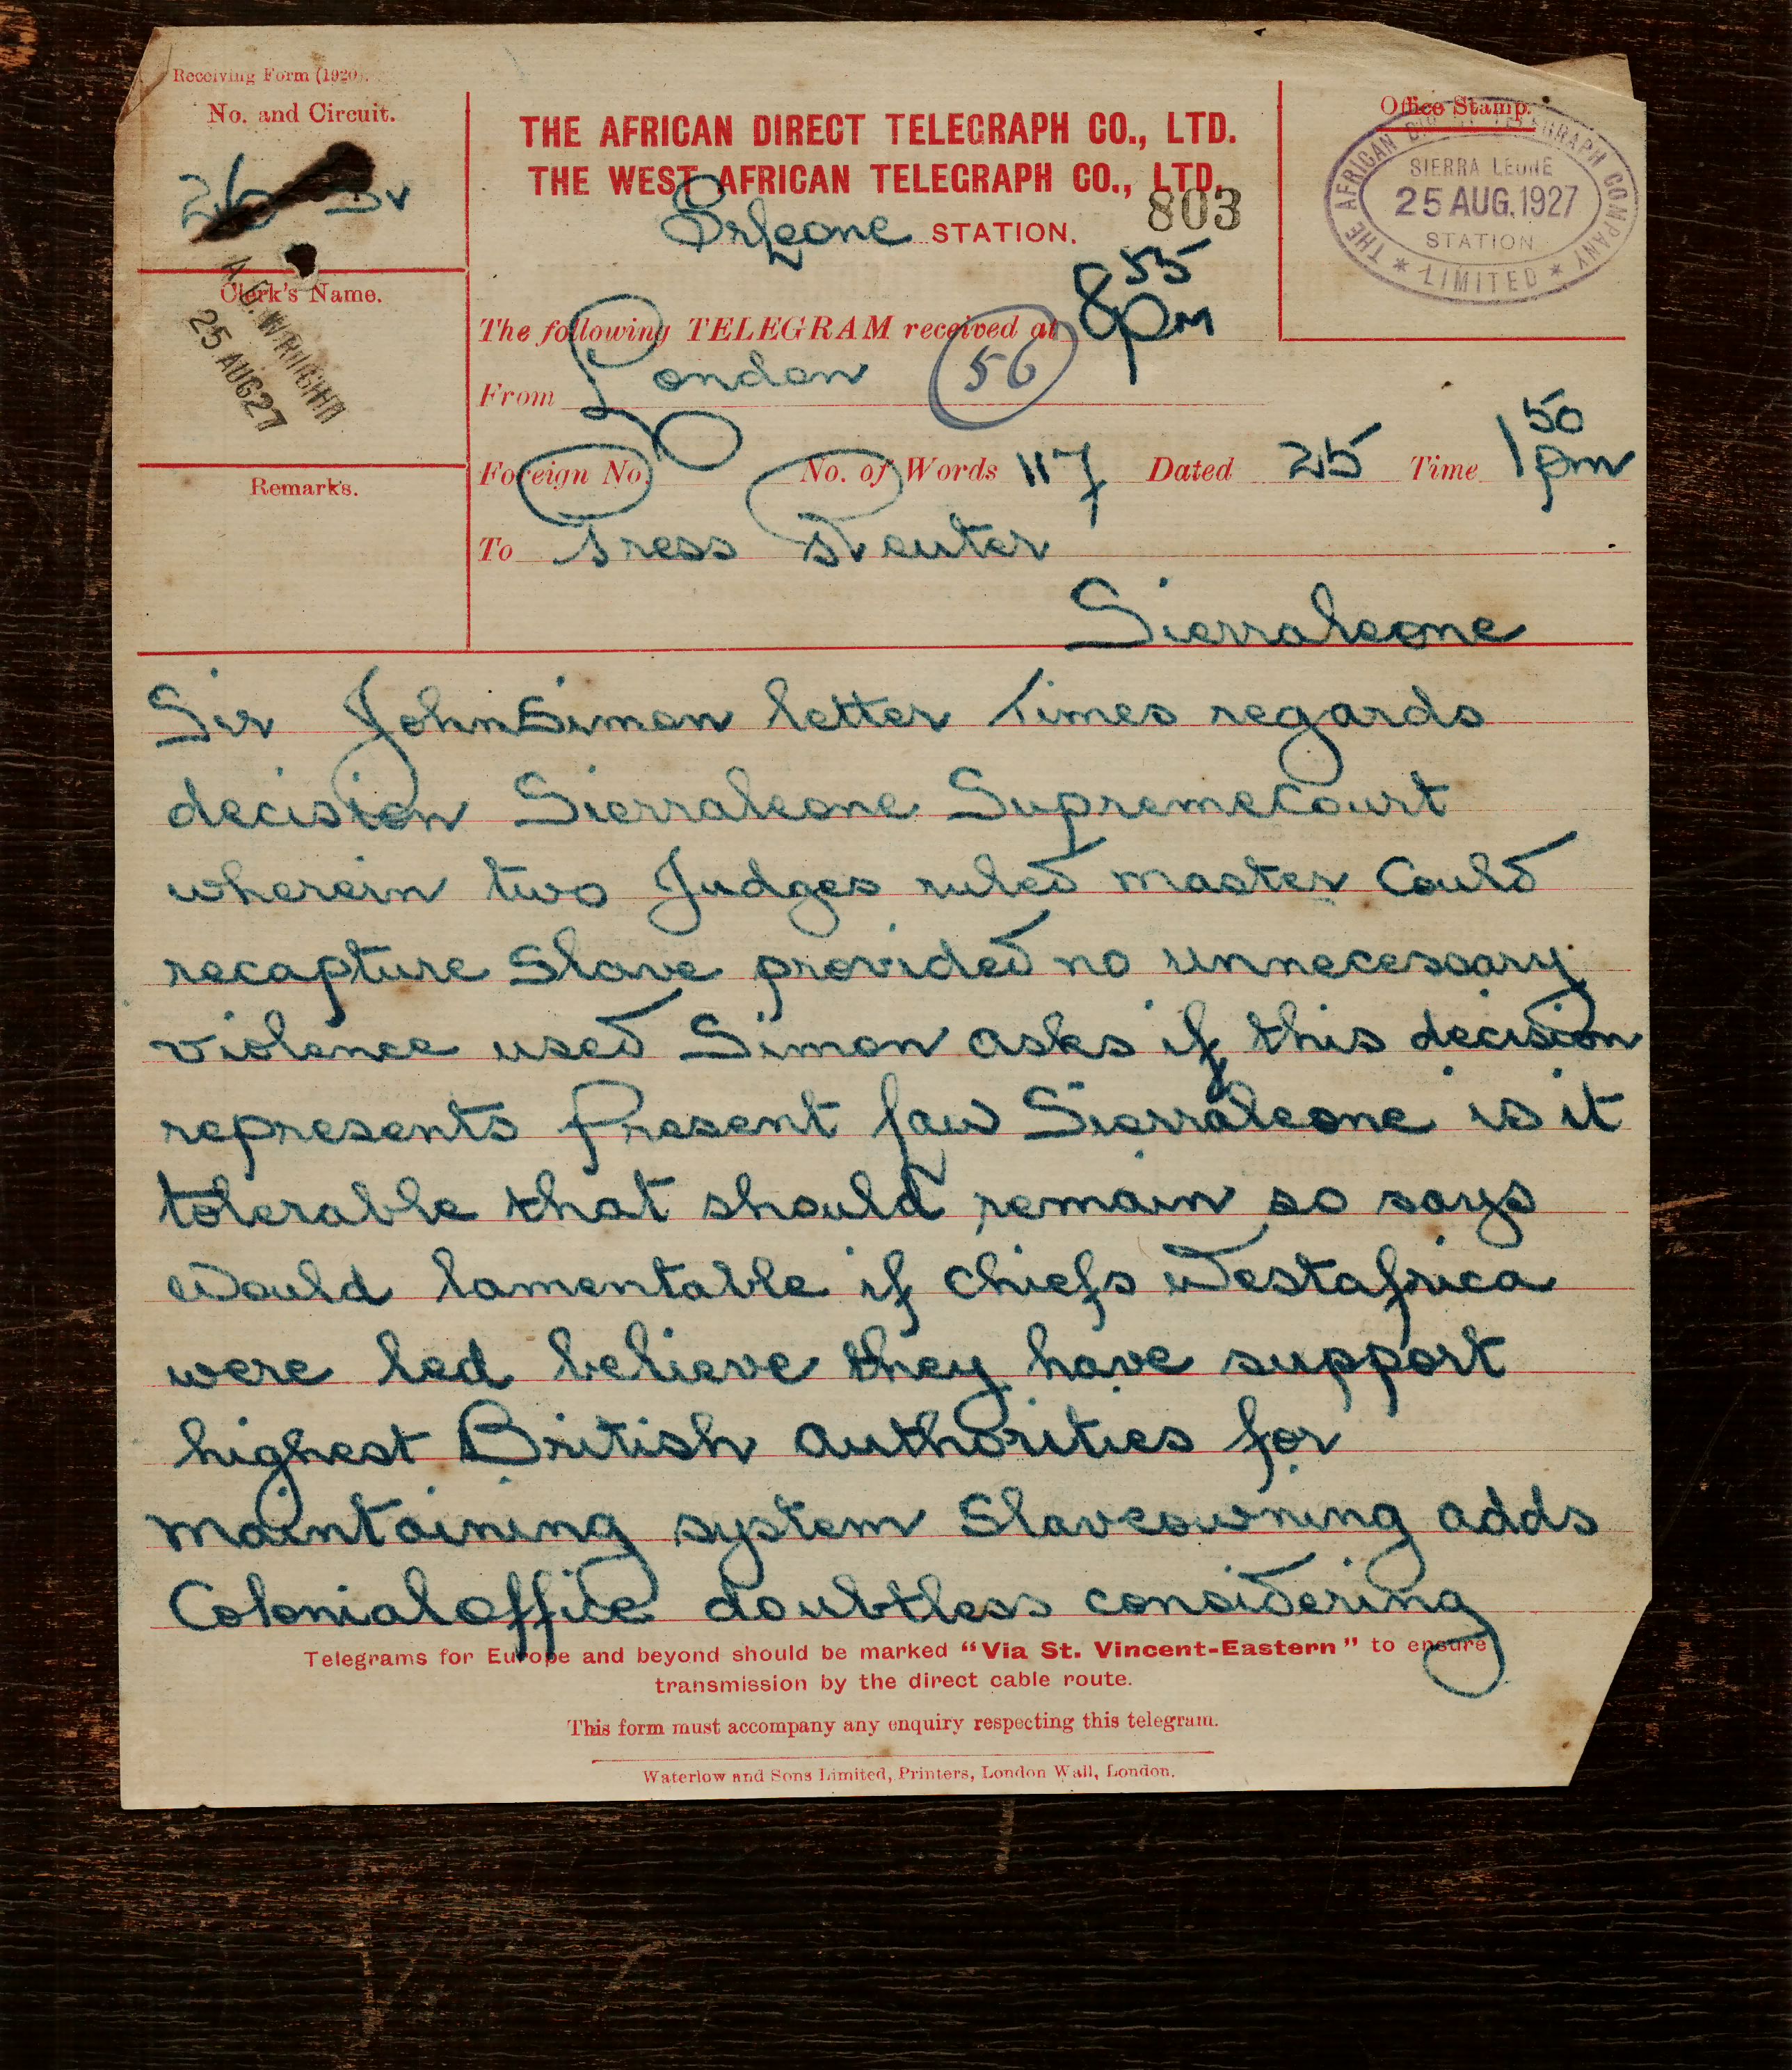 Receiving Form (1920).
No. and Circuit.
26 Sv
THE AFRICAN DIRECT TELEGRAPH CO., LTD.
THE WEST AFRICAN TELEGRAPH CO., LTD.
Srleone STATION.
803
Office Stamp.
THE AFRICAN DIRECT TELEGRAPH COMPANY
SIERRA LEONE
25 AUG. 1927
STATION
* LIMITED *
Clerk's Name.
25 AUG 27
The following TELEGRAM received at 8 55 pm
From London 56
Foreign No. No. of Words 117 Dated 25 Time 1 50 pm
Remarks.
To Press Reuter
Sierraleone
Sir JohnSimon letter Times regards
decision Sierraleone Supremecourt
wherein two Judges ruled master Could
recapture Slave provided no unnecessary
violence used Simon asks if this decision
represents Present law Sierraleone is it
tolerable that should remain so says
Would lamentable if chiefs Westafrica
were led believe they have support
highest British authorities for
maintaining system Slaveowning adds
Colonialoffice doubtless considering
Telegrams for Europe and beyond should be marked "Via St. Vincent-Eastern" to ensure
transmission by the direct cable route.
This form must accompany any enquiry respecting this telegram.
Waterlow and Sons Limited, Printers, London Wall, London.